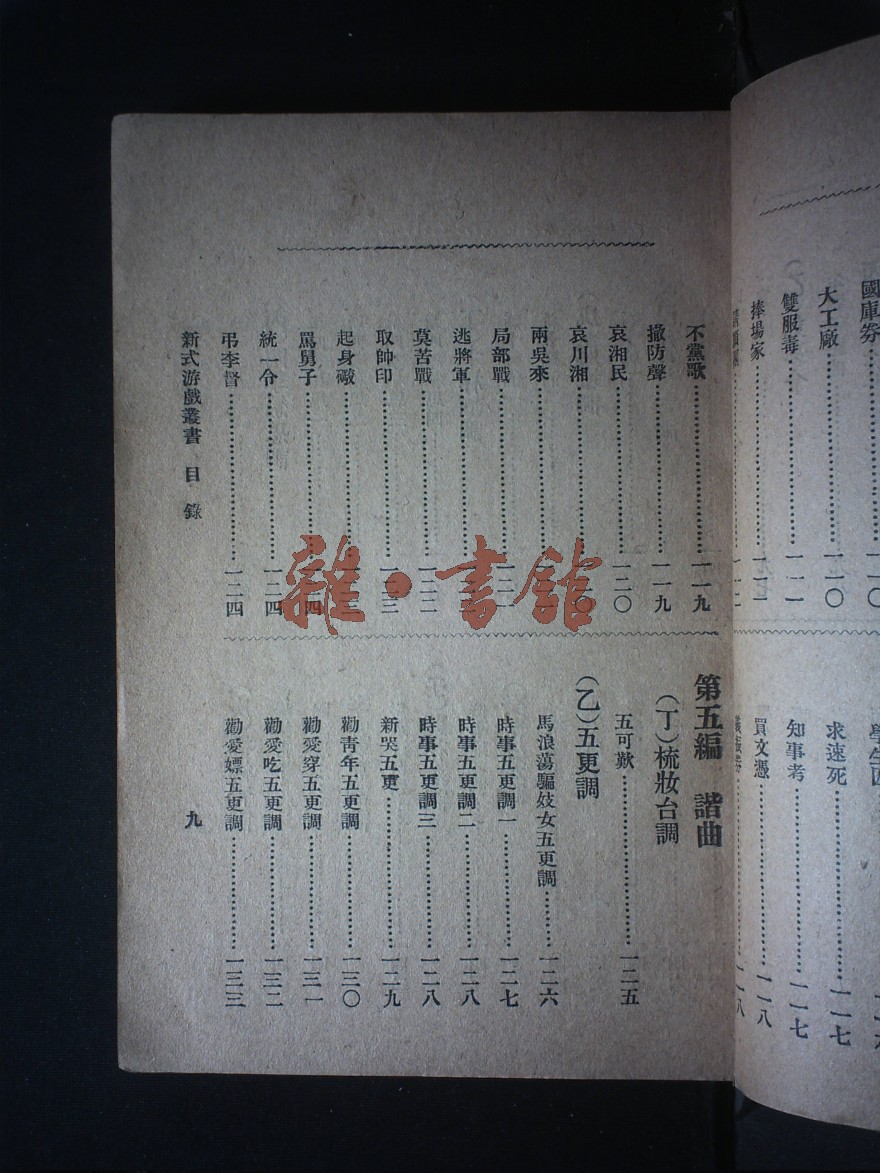 國庫券
大工廠……一一〇
雙服毒……一一一
捧場家……一一一
求速死……一一七
知事考……一一七
買文憑……一一八
不黨歌……一一九
撤防聲……一一九
哀湘民……一二〇
哀川湘……二〇
兩吳來……
局部戰……
逃將軍……
莫苦戰……一二二
取帥印……一二三
起身礮……
罵舅子……一二四
統一令……一二四
弔李督……一二四
第五編 諧曲
（丁）梳妝台調
五可歎……一二五
（乙）五更調
馬浪蕩騙妓女五更調……一二六
時事五更調一……一二七
時事五更調二……一二八
時事五更調三……一二八
新哭五更……一二九
勸青年五更調……一三〇
勸愛穿五更調……一三一
勸愛吃五更調……一三二
勸愛嫖五更調……一三三
新式游戲叢書 目錄
九
雜·書館